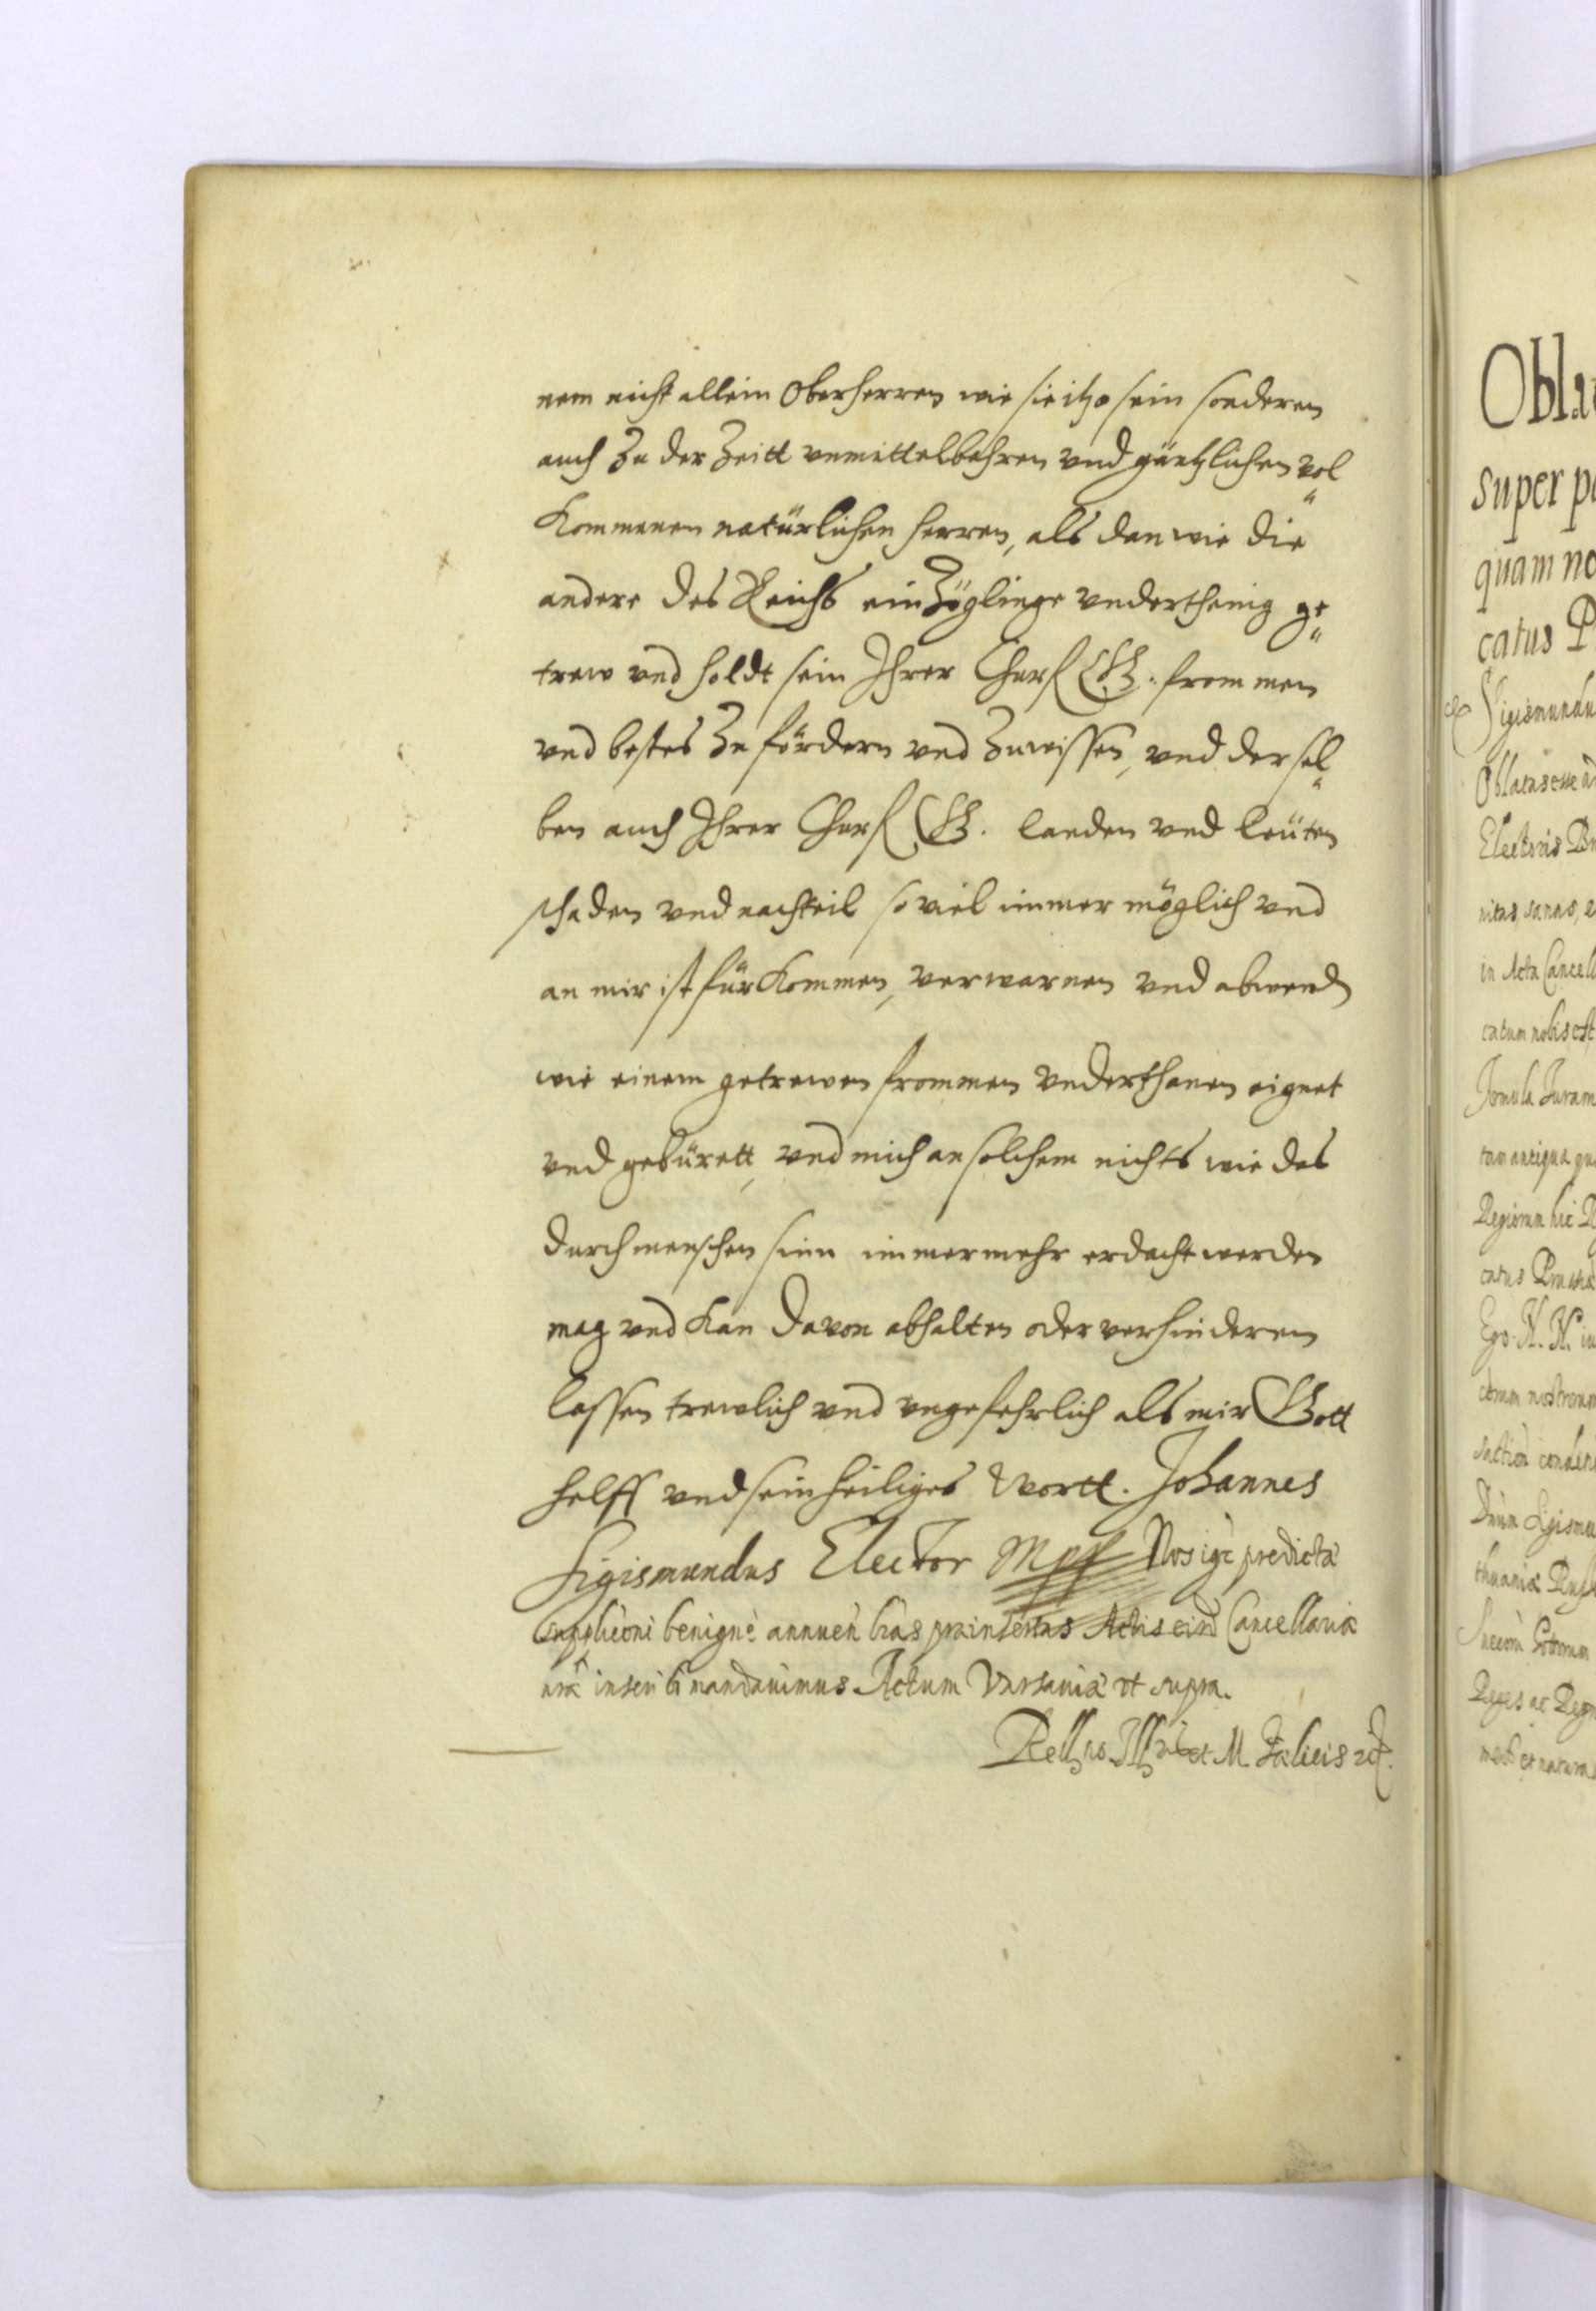 nem nicht allein Oberherren wie sie itzo sein sonderen
auch Zu der Zeitt vnmittelbahren vnd gäntzlichen vol
Kommenen natürlichen herren, als dan wie die
andere des Reichs einZöglinge vnderthenig ge
trew vnd holdt sein Ihrer Churf G. frommen
vnd bestes Zu fördern vnd Zuwissen, vnd dersel
ben auch Ihrer Churf G. landen vnd leüten
schaden vnd nachteil so viel immer möglich vnd
an mir ist für Kommen, verwarnen vnd abwend
wie einem getrewen frommen vnderthanen eignet
vnd gebürett, vnd mich an solchem nichts wie das
durch menschen sinn immermehr erdacht werden
mag vnd Kan davon abhalten oder verhinderen
lassen trewlich vnd vngefehrlich als mir Gott
helff vnd sein heiliges Wortt. Johannes
Sigismundus Elector Mpp Nos igr predicta
suppliconi benigne annuen lras preinsertas Actis eisd Cancellariæ
nræ inseri mandauimus. Actum Varsauiæ vt supra.
Obla
super p
quam no
catus P
Sigismundu
Oblatas esse a
Electoris Br
nitas, sanas, e
in Acta Cancell
catum nobis est
Juram
tan antiqua qu
Regiorum hic R
catus Prussiæ
Ego N. N. iu
nostrorum
Dnum Sigismu
thuaniæ Russ
Gottorum
Reges ac Regn
et natura